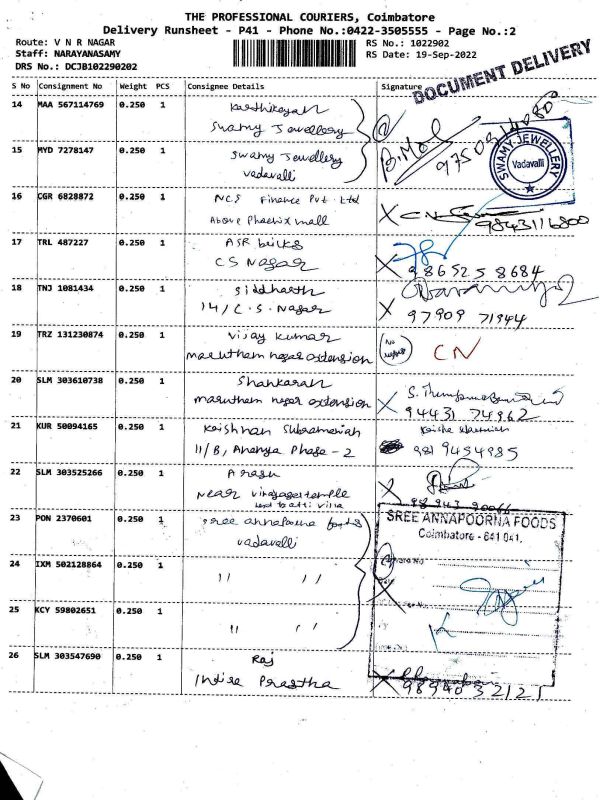 THE PROFESSIONAL COURIERS, Coimbatore
Delivery Runsheet - P41 - Phone No.:0422-3505555 - Page No.:2
Route: V N R NAGAR
Staff: NARAYANASAMY
DRS No.: DCJB102290202
RS No.: 1022902
RS Date: 19-Sep-2022
DOCUMENT DELIVERY
S No Consignment No Weight PCS Consignee Details Signature
14 MAA 567114769 0.250 1 Karthikeyan
Swamy Jewellery
15 MYD 7278147 0.250 1 Swamy Jewellery
Vadavalli
SWAMY JEWELLERY
Vadavalli
16 CGR 6828872 0.250 1 NCS Finance Pvt Ltd
Above Phoenix mall
9843116800
17 TRL 487227 0.250 1 ASR bricks
CS Nagar
98652 58 8684
18 TNJ 1081434 0.250 1 Siddharth
14/C.S. Nagar
97909 71944
19 TRZ 131230874 0.250 1 Vijay Kumar
marutham nagar extension
CN
20 SLM 303610738 0.250 1 Shankaran
marutham nagar extension
94431 74962
21 KUR 50094165 0.250 1 Krishnan Subramaniah
11/B, Ananya Phase - 2
981 9454985
22 SLM 303525266 0.250 1 Arasu
Near Vinayagar temple
98943 90066
23 PON 2370601 0.250 1 Sree annapoorna foods
vadavalli
SREE ANNAPOORNA FOODS
Coimbatore - 641 041.
24 IXM 502128864 0.250 1 " "
25 KCY 59802651 0.250 1 " "
26 SLM 303547690 0.250 1 Raj
Indira Prastha
98940 32121